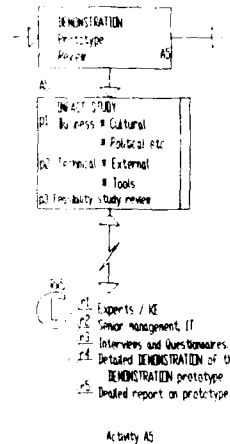 DEMONSTRATION
Prototype
Review A5
A5
IMPACT STUDY
p1 Business * Cultural
* Political etc
p2 Technical * External
* Tools
p3 Feasibility study review
r1 Experts / KE
r2 Senior management, IT
r3 Interviews and Questionnaires.
r4 Detailed DEMONSTRATION of th
DEMONSTRATION prototype
r5 Dealed report on prototype
Activity A5